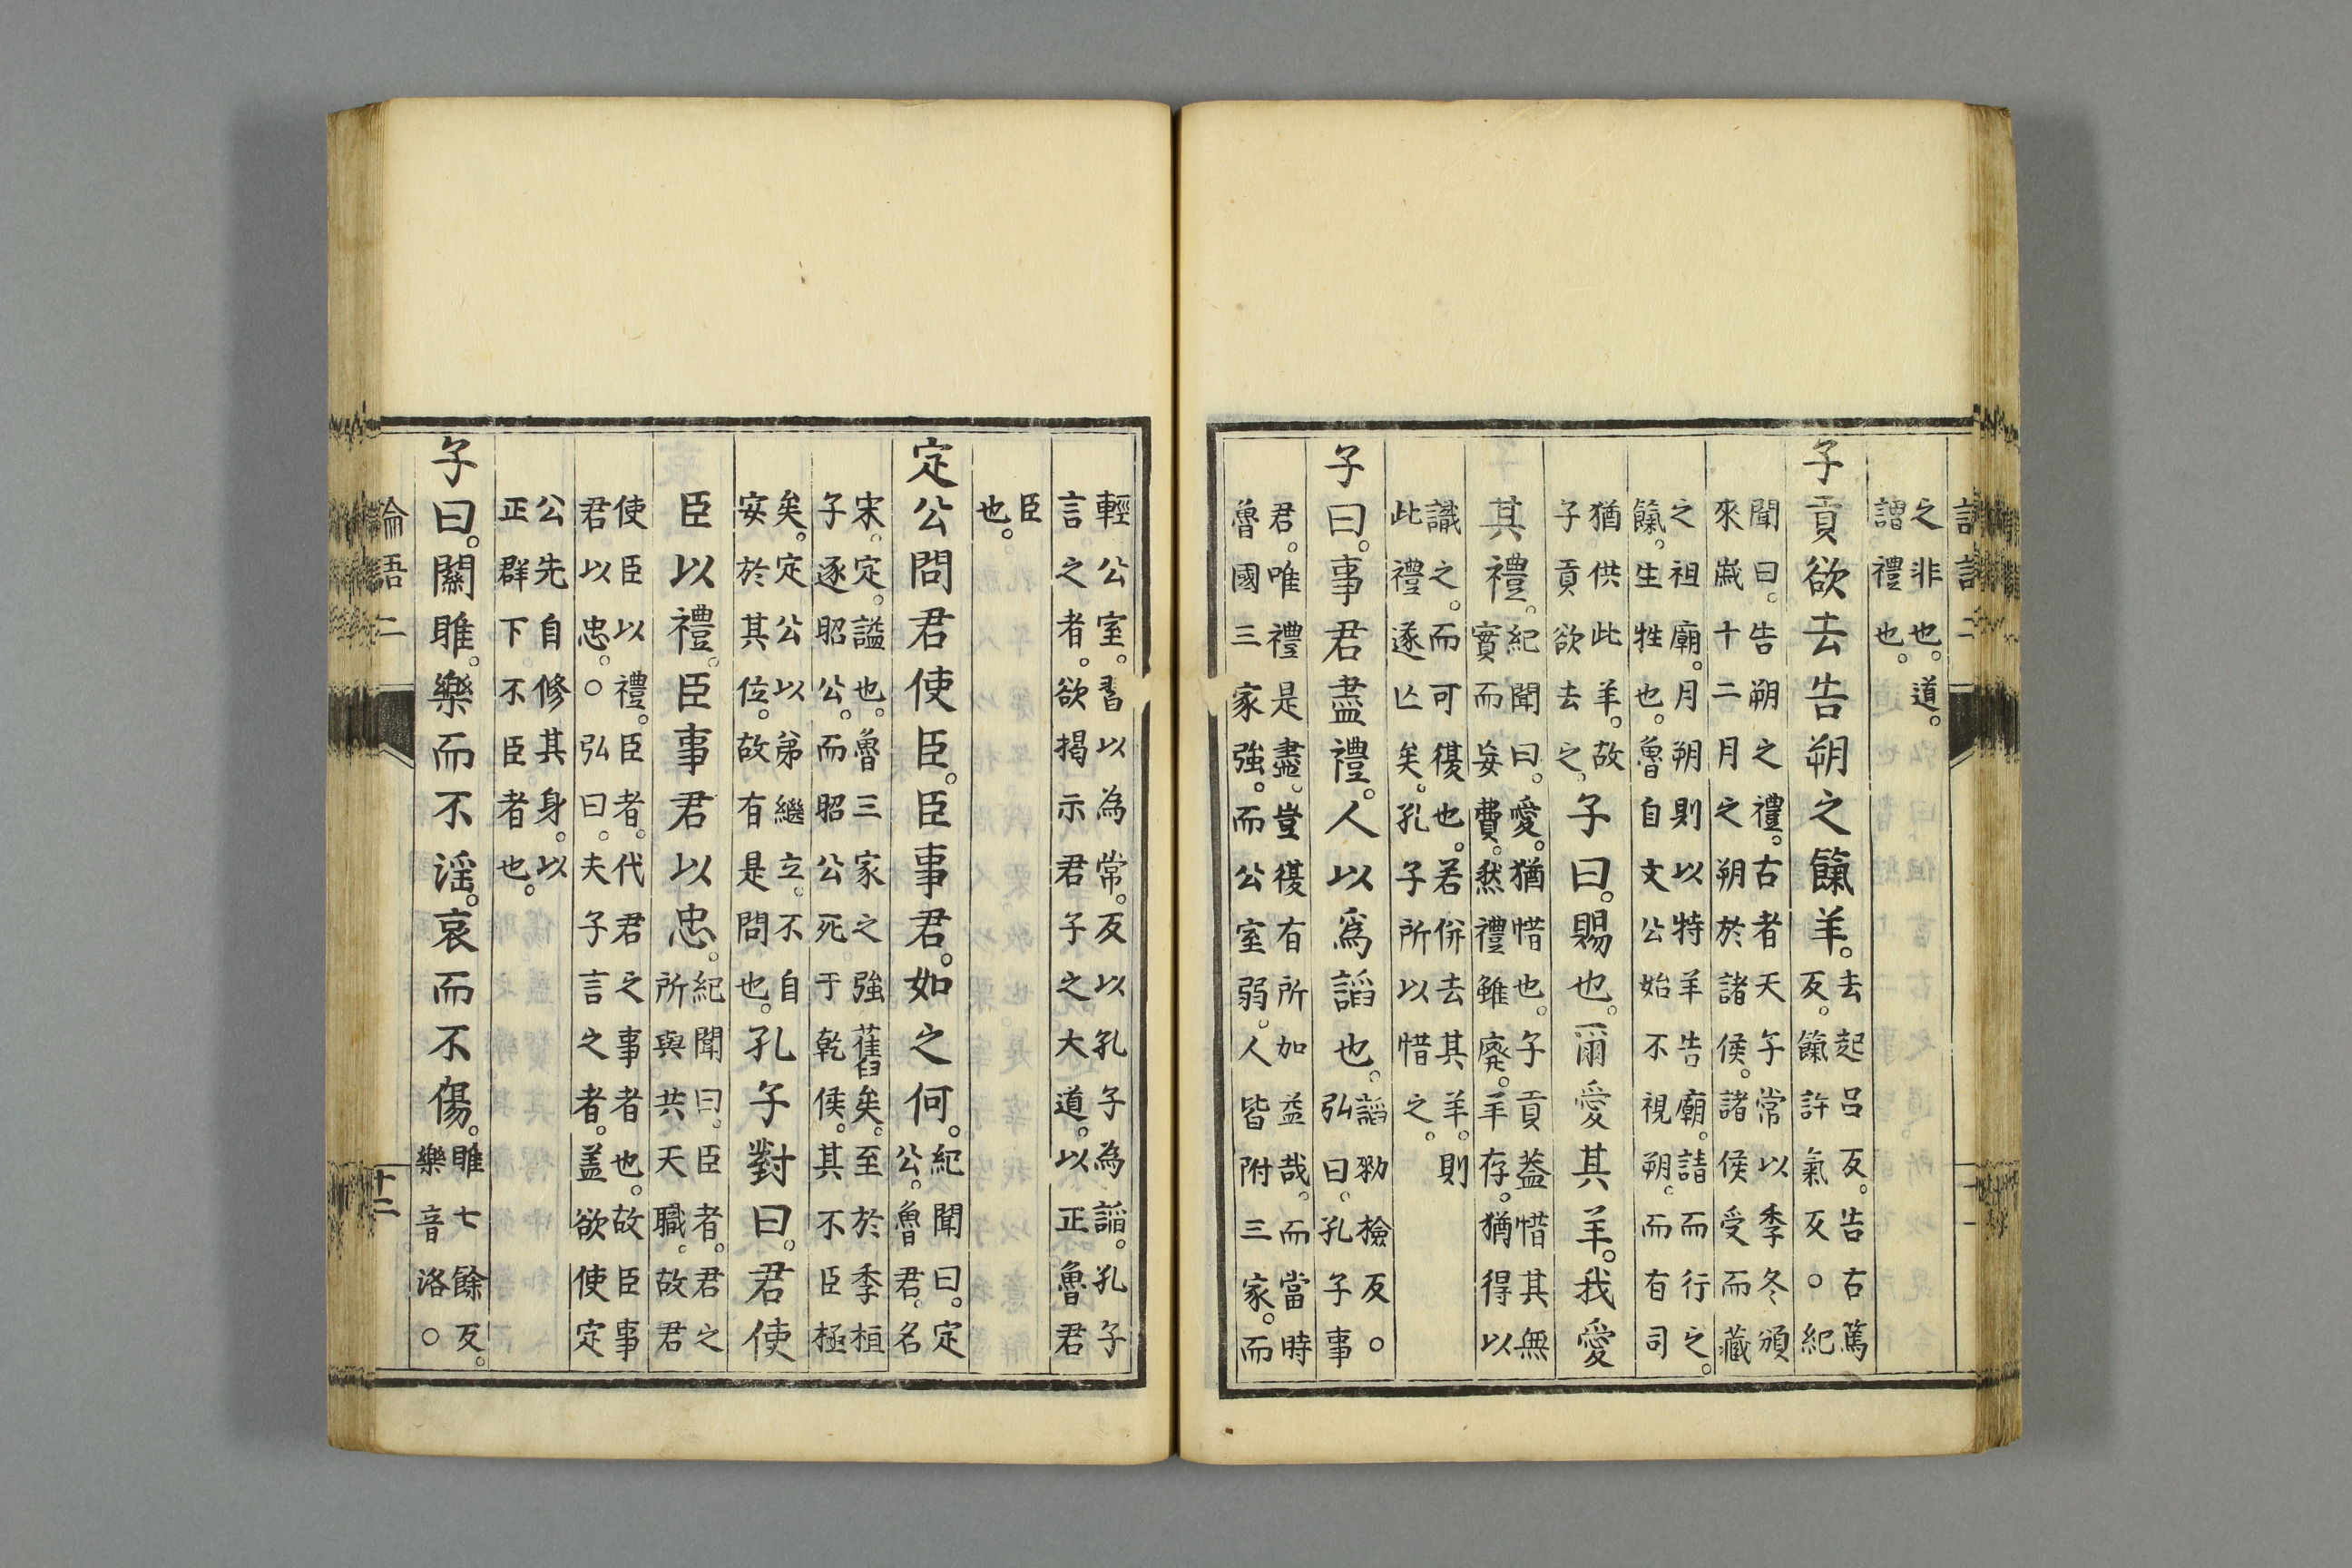 之非也。道。
謂禮也。
子貢欲去告朔之餼羊。去起呂反。告古篤
反。餼許氣反。○紀
聞曰。告朔之禮。古者天子常以季冬頒
來歲十二月之朔於諸侯。諸侯受而藏
之祖廟。月朔則以特羊告廟。請而行之。
餼。生牲也。魯自文公始不視朔。而有司
猶供此羊。故
子貢欲去之。子曰。賜也。爾愛其羊。我愛
其禮。紀聞曰。愛。猶惜也。子貢蓋惜其無
實而妄費。然禮雖廢。羊存。猶得以
識之。而可復也。若併去其羊。則
此禮遂亾矣。孔子所以惜之。
子曰。事君盡禮。人以爲諂也。諂勑檢反。○
弘曰。孔子事
君。唯禮是盡。豈復有所加益哉。而當時
魯國三家強。而公室弱。人皆附三家。而
輕公室。習以為常。反以孔子為諂。孔子
言之者。欲揭示君子之大道。以正魯君
臣
也。
定公問君使臣。臣事君。如之何。紀聞曰。定
公。魯君。名
宋。定。謚也。魯三家之強舊矣。至於季桓
子逐昭公。而昭公死于乾侯。其不臣極
矣。定公以弟繼立。不自
安於其位。故有是問也。孔子對曰。君使
臣以禮。臣事君以忠。紀聞曰。臣者。君之
所與共天職。故君
使臣以禮。臣者。代君之事者也。故臣事
君以忠。○弘曰。夫子言之者。蓋欲使定
公先自修其身。以
正群下。不臣者也。
子曰。關雎。樂而不淫。哀而不傷。雎七餘反。
樂音洛○
論語二
十二